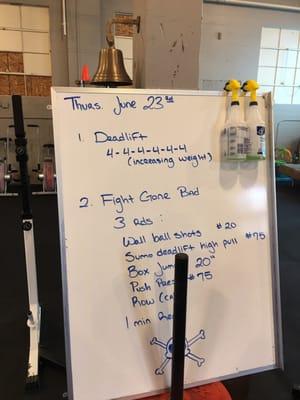 Thurs. June 23rd
1. Deadlift
4-4-4-4-4-4-4
(increasing weight)
2. Fight Gone Bad
3 rds:
Wall ball shots #20
Sumo deadlift high pull #75
Box Jump 20"
Push #75
Row
1 min